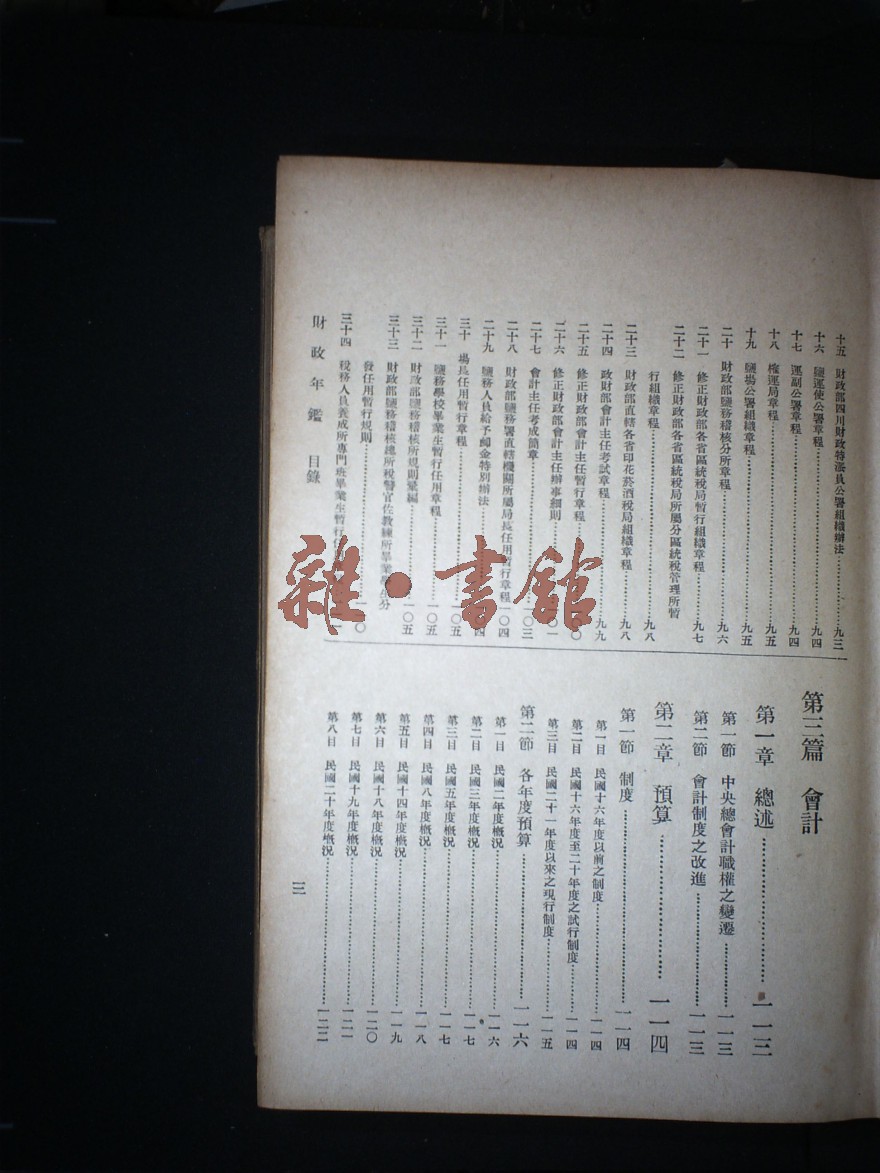 十五 財政部四川財政特派員公署組織辦法……九三
十六 鹽運使公署章程……九四
十七 運副公署章程……九四
十八 榷運局章程……九五
十九 鹽場公署組織章程……九五
二十 財政部鹽務稽核分所章程……九六
二十一 修正財政部各省區統稅局暫行組織章程……九七
二十二 修正財政部各省區統稅局所屬分區統稅管理所暫
行組織章程……九八
二十三 財政部直轄各省印花菸酒稅局組織章程……九八
二十四 政財部會計主任考試章程……九九
二十五 修正財政部會計主任暫行章程……
二十六 修正財政部會計主任辦事細則……一〇一
二十七 會計主任考成簡章……一〇三
二十八 財政部鹽務署直轄機關所屬局長任用暫行章程 一〇四
二十九 鹽務人員給予卹金特別辦法……四
三十 場長任用暫行章程……一〇五
三十一 鹽務學校畢業生暫行任用章程……一〇五
三十二 財政部鹽務稽核所規則彙編……一〇五
三十三 財政部鹽務稽核總所稅警官佐教練所畢業學生分
發任用暫行規則……一〇
三十四 稅務人員養成所專門班畢業生暫行
第三篇 會計
第一章 總述……一一三
第一節 中央總會計職權之變遷……一一三
第二節 會計制度之改進……一一三
第二章 預算……一一四
第一節 制度……一一四
第一目 民國十六年度以前之制度……一一四
第二目 民國十六年度至二十年度之試行制度……一一四
第三目 民國二十一年度以來之現行制度……一一五
第二節 各年度預算……一一六
第一目 民國二年度概況……一一六
第二目 民國三年度概況……一一七
第三目 民國五年度概況……一一七
第四目 民國八年度概況……一一八
第五目 民國十四年度概況……一一九
第六目 民國十八年度概況……一二〇
第七目 民國十九年度概況……一二一
第八目 民國二十年度概況……一二二
財政年鑑 目錄
三
雜·書館